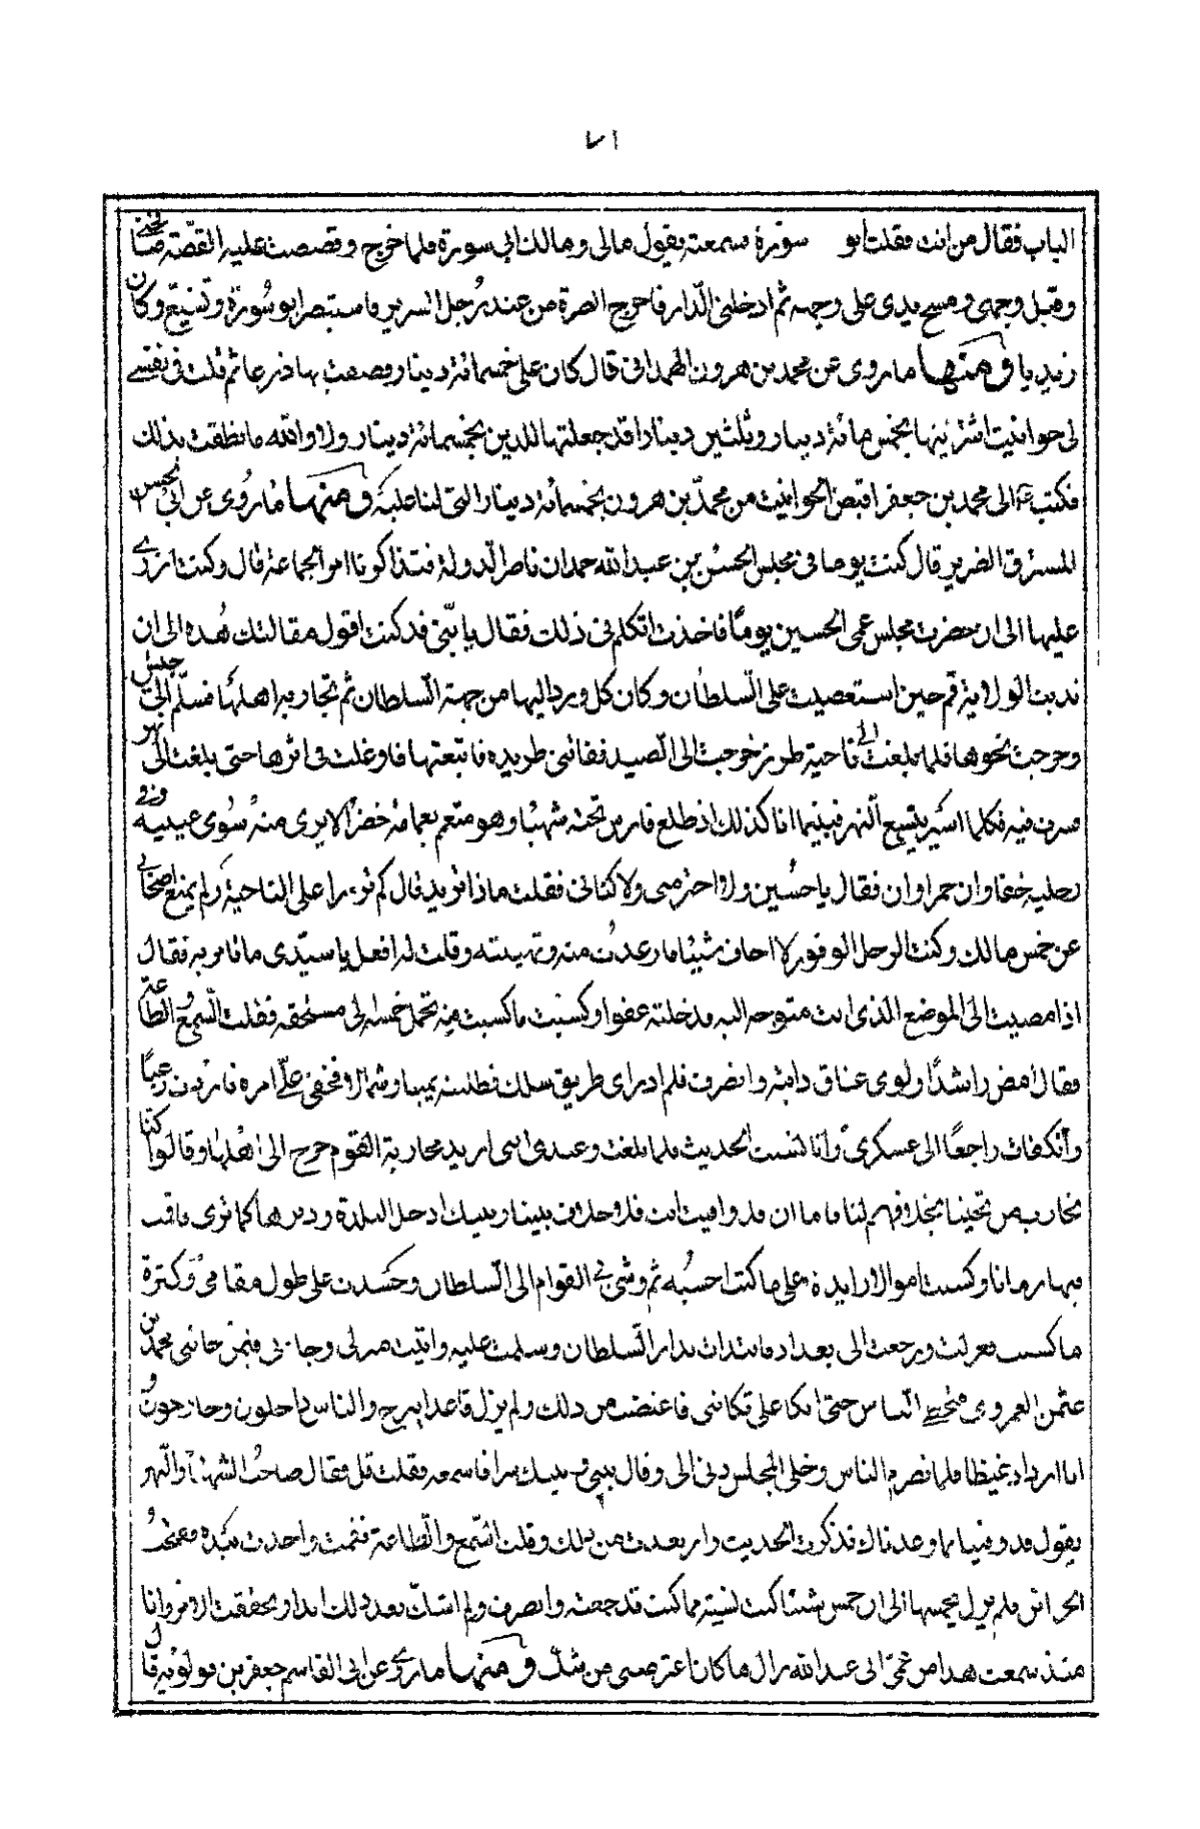 ٧١
الباب فقال من انت فقلت ابو سورة سمعته يقول مالى ومالك ابى سورة فلما خرج وقصصت عليه القصّة صافحنى
وقبل وجهى ومسح بيدى على وجهه ثم ادخلنى الدّار فاخرج الصرة من عند رجل السرير فاستبصر ابو سورة وتشيّع وكان
زيديا ومنها ماروى عن محمد بن هرون الهمدانى قال كان علىّ خمسمائة دينار وضقت بها ذرعا ثم قلت فى نفسى
لى حوانيت اشتريتها بخمس مائة دينار وثلثين دينارا قد جعلتها للدين بخمسمائة دينار ولا والله مانطقت بذلك
فكتب ع الى محمد بن جعفر اقبض الحوانيت من محمّد بن هرون بخمسمائة دينار التى لنا عليه ومنها ماروى عن ابى الحسن
المسترق الضرير قال كنت يوما فى مجلس الحسن بن عبد الله حمدان ناصر الدولة فتذاكرنا امر الجماعة قال وكنت ازرى
عليها الى ان حضرت مجلس عمى الحسين يومًا فاخذت اتكلم فى ذلك فقال يا بنّى قد كنت اقول مقالتك هذه الى ان
ندبت لولاية قم حين استعصيت على السّلطان وكان كل ويرد اليها من جهة السّلطان ثم تحاربه اهلها فسلّم الىّ جيش
وخرجت نحوها فلما بلغت الى ناحية طرز خرجت الى الصيد ففاتنى طريده فاتبعتها فاوغلت فى اثرها حتى بلغت الى نهر
فسرت فيه فكلما اسير يتسع النهر فبينما انا كذلك اذ طلع فارس تحته شهباء وهو متعم بعمامة خضراء لايرى منه سوى عينيه
رجليه خفاوان حمراوان فقال ياحسين ولا احترمنى ولاكنانى فقلت ماذا تريد قال كم تزرا على الناحية ولم يمنع اصحابى
عن خمس مالك وكنت الرجل الوقور لااخاف شيئا فارعدت منه وتهيبته وقلت له افعل ياسيّدى ماتامر به فقال
اذا مضيت الى الموضع الذى انت متوجه اليه فدخلته عفوا وكسبت ماكسبت منه تحمل خمسه الى مستحقه فقلت السّمع الطاعة
فقال امض راشدًا ولوى عناق دابته وانصرف فلم ادر اى طريق سلك فطلبته يمينا وشمالا فخفى علىّ امره فازددت رعبًا
وانكفات راجعًا الى عسكرى وانا تنسيت الحديث فلما بلغت وعندى انى اريد محاربة القوم خرج الى اهلها وقالوا كنا
نحارب من تجيئنا بخلافهم لنا فاما ان قد وافيت انت فلا خلاف بيننا وبينك ادخل البلدة ودبرها كما ترى فاقمت
فيها زمانا وكسبت اموالا زايدة على ماكنت احسبه ثم وشى بى القوام الى السّلطان وحسدت على طول مقامى وكثرة
ماكسبت فعزلت ورجعت الى بغداد فابتدات بدار السّلطان وسلمت عليه واتيت منزلى وجاءنى فيمن جائنى محمد بن
عثمن العمروى فتخطى النّاس حتى اتكا على تكائى فاغتضت من ذلك ولم يزل قاعدا يبرح والناس داخلون وخارجون و
انا ازداد غيظا فلما تصرم الناس وخلى المجلس دنى الى وقال بينى وبينك سر فاسمعه فقلت قل فقال صاحب الشهباء والنّهر
يقول قد وفينا بما وعدناك فذكرت الحديث وارتعدت من ذلك وقلت السّمع والطاعة فقمت واخذت بيده ففتحت
الخزائن فلم يزل يخمسها الى ان خمس شيئا كنت نسيته مما كنت قد جمعته وانصرف ولم اشك بعد ذلك ابدا وتحققت الامر وانا
منذ سمعت هذا من عمى ابى عبد الله زال ماكان اعترضنى من شك ومنها ماروى عن ابى القاسم جعفر بن قولويه قال